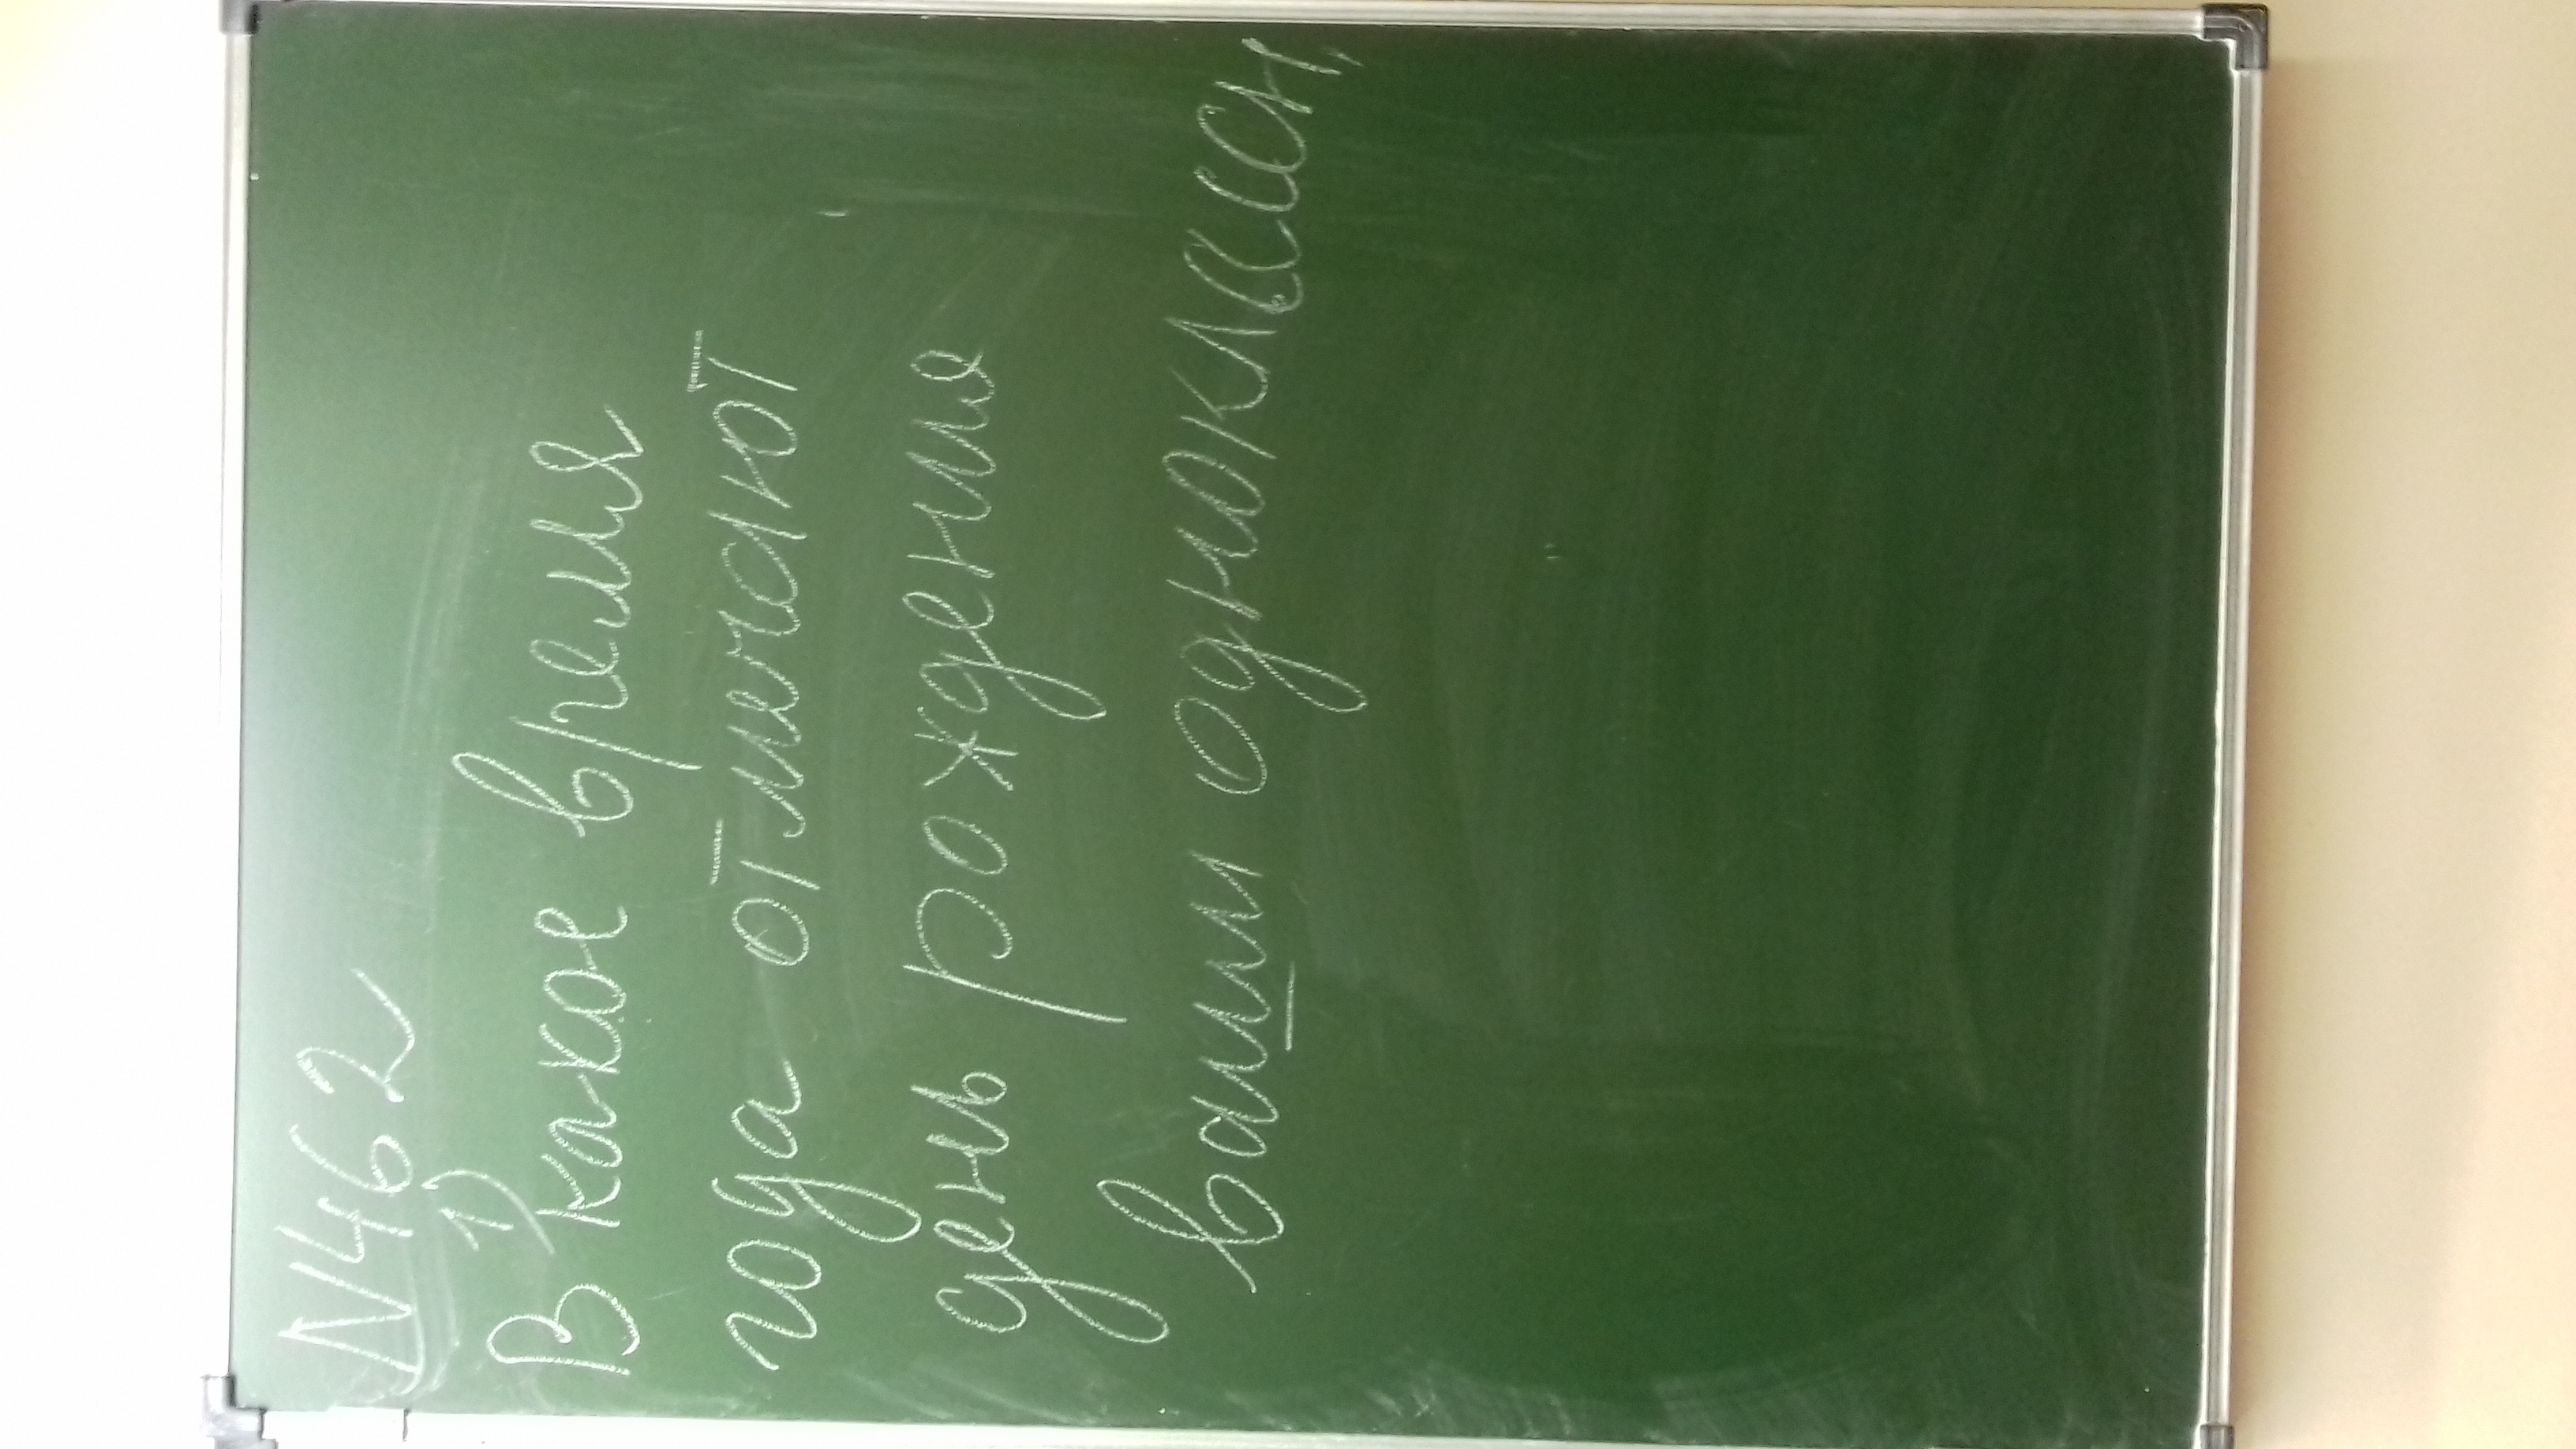 N462
1)
В какое время
года отмечают
день рождения
ваши одноклассн.